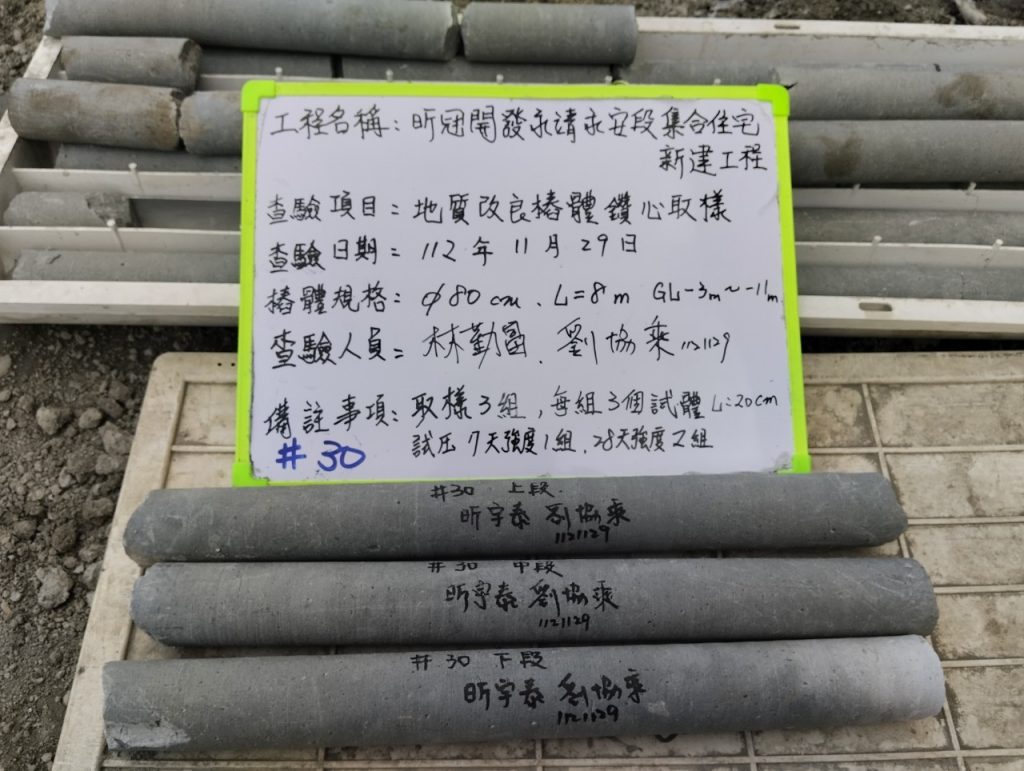 工程名稱：昕冠開發永靖永安段集合住宅
新建工程
查驗項目：地質改良樁體鑽心取樣
查驗日期：112年11月29日
樁體規格：φ80cm、L=8m GL-3m~-11m
查驗人員：林勤富、劉協乘 1121129
備註事項：取樣3組，每組3個試體 L=20cm
試压 7天強度1組、28天強度2組
#30
#30 上段
昕宇泰 劉協乘
1121129
#30 中段
昕宇泰 劉協乘
1121129
#30 下段
昕宇泰 劉協乘
1121129